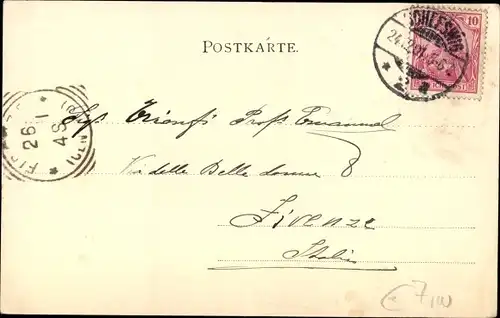 POSTKARTE.
SCHLESWIG
10
26 1
4S
Sigr Trionfi Profr. Emanuel
Via delle Belle donne 8
Firenze
Italia
€ 7,00